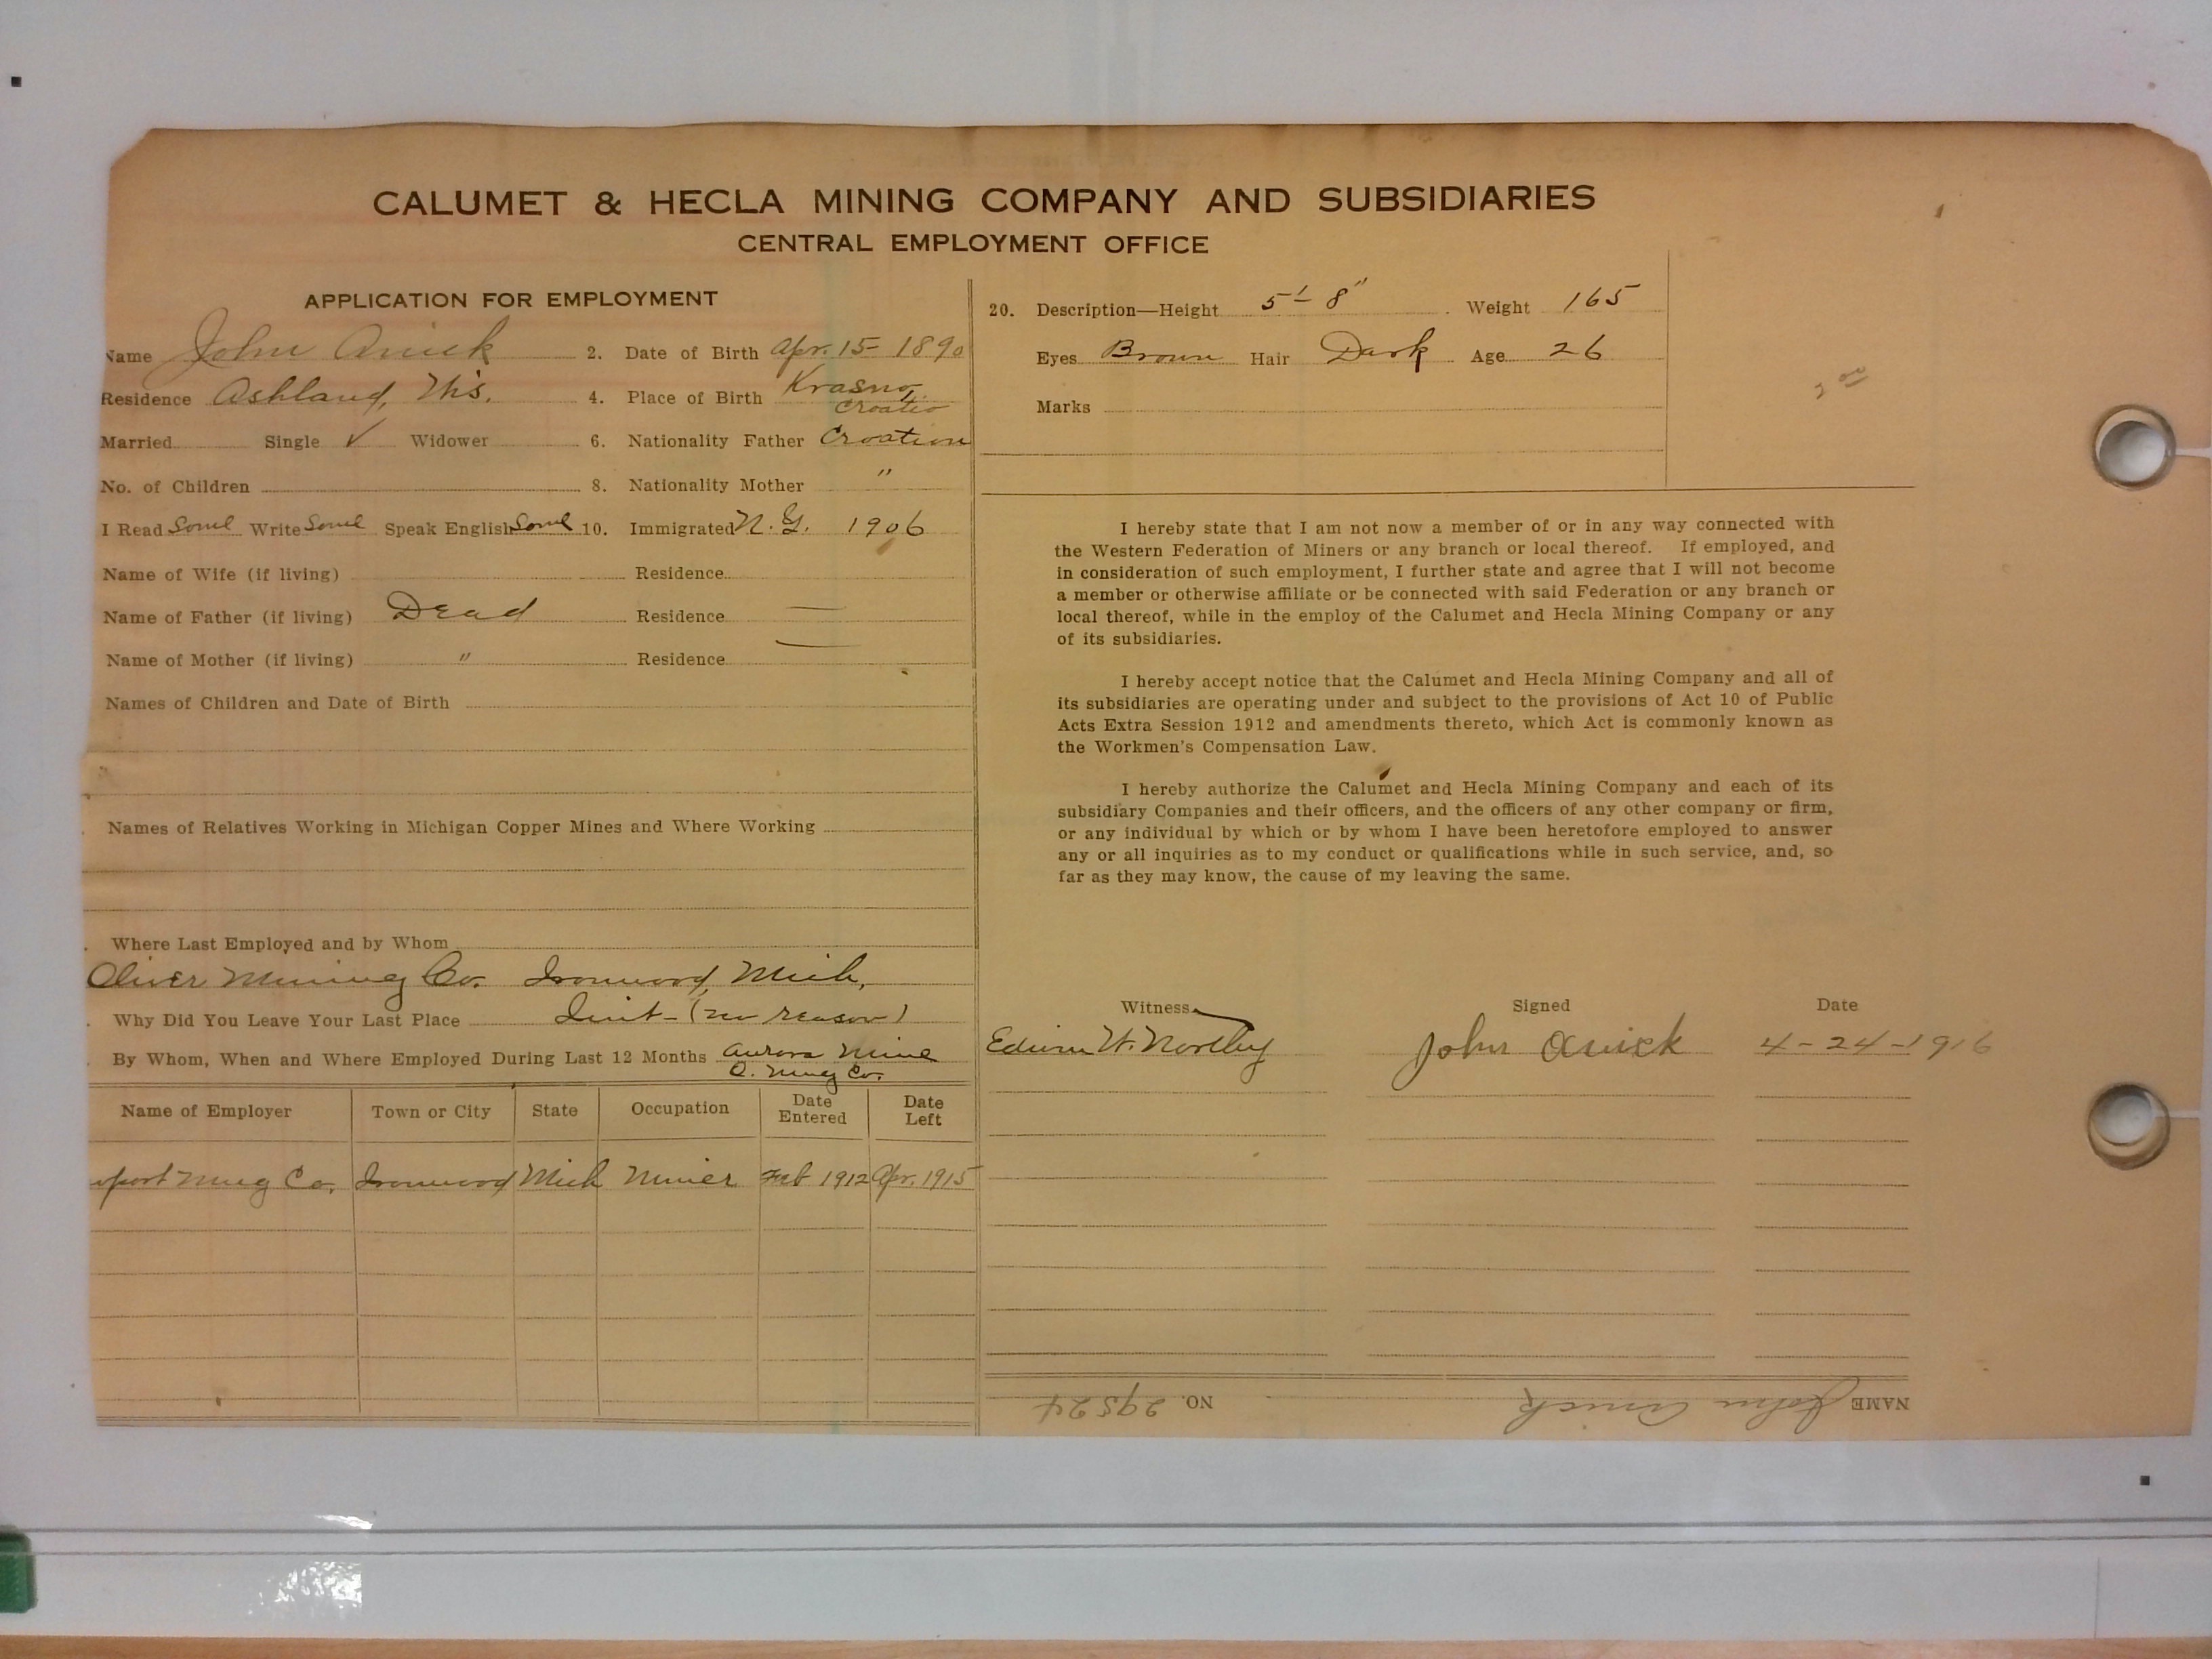 CALUMET & HECLA MINING COMPANY AND SUBSIDIARIES
CENTRAL EMPLOYMENT OFFICE
APPLICATION FOR EMPLOYMENT
Name John Anick 2. Date of Birth Apr. 15 - 1890
Residence Ashland, Wis. 4. Place of Birth Krasno,
Croatia
Married Single ✓ Widower 6. Nationality Father Croation
No. of Children 8. Nationality Mother "
I Read Some Write Some Speak English Some 10. Immigrated N.Y. 1906
Name of Wife (if living) Residence
Name of Father (if living) Dead Residence —
Name of Mother (if living) " Residence —
Names of Children and Date of Birth
Names of Relatives Working in Michigan Copper Mines and Where Working
Where Last Employed and by Whom
Oliver Mining Co. Ironwood, Mich.
Why Did You Leave Your Last Place Quit - (no reason)
By Whom, When and Where Employed During Last 12 Months Aurora Mine
O. Mng Co.
Name of Employer Town or City State Occupation Date Entered Date Left
wport Mng Co. Ironwood Mich Miner Feb 1912 Apr. 1915
20. Description—Height 5'- 8" Weight 165
Eyes Brown Hair Dark Age 26
Marks
2 00
I hereby state that I am not now a member of or in any way connected with
the Western Federation of Miners or any branch or local thereof. If employed, and
in consideration of such employment, I further state and agree that I will not become
a member or otherwise affiliate or be connected with said Federation or any branch or
local thereof, while in the employ of the Calumet and Hecla Mining Company or any
of its subsidiaries.
I hereby accept notice that the Calumet and Hecla Mining Company and all of
its subsidiaries are operating under and subject to the provisions of Act 10 of Public
Acts Extra Session 1912 and amendments thereto, which Act is commonly known as
the Workmen's Compensation Law.
I hereby authorize the Calumet and Hecla Mining Company and each of its
subsidiary Companies and their officers, and the officers of any other company or firm,
or any individual by which or by whom I have been heretofore employed to answer
any or all inquiries as to my conduct or qualifications while in such service, and, so
far as they may know, the cause of my leaving the same.
Witness Signed Date
Edwin H. John Anick 4-24-1916
NAME John Anick NO. 29524